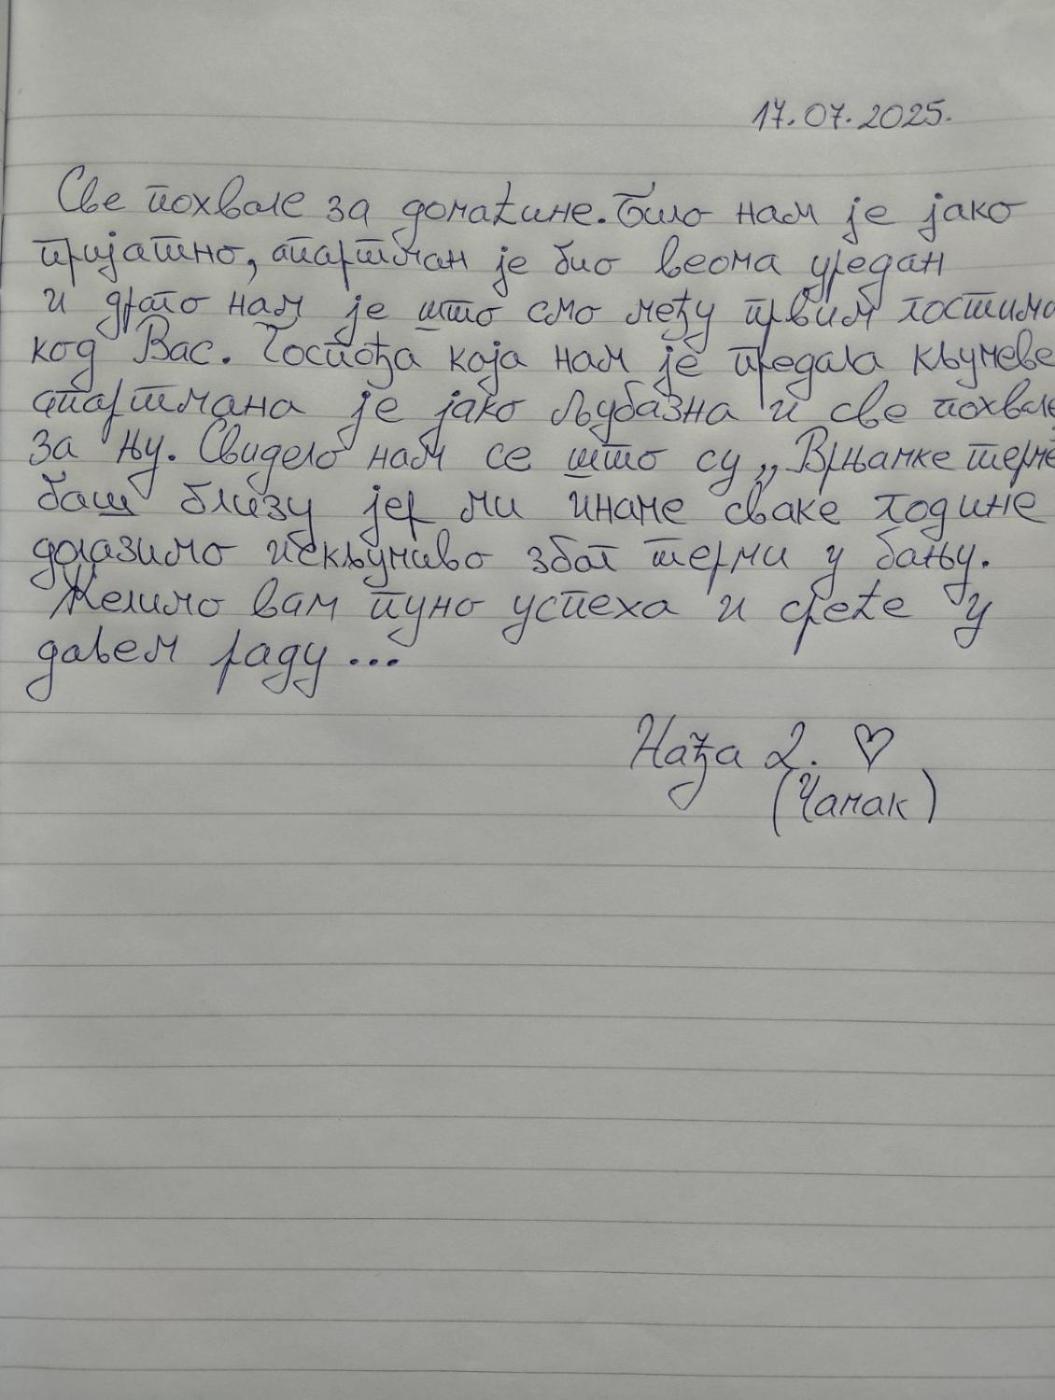 17.07.2025.
Све похвале за домаћине. Било нам је јако
пријатно, апартман је био веома уредан
и драго нам је што смо међу првим гостима
код Вас. Госпођа која нам је предала кључеве
апартмана је јако љубазна и све похвале
за њу. Свидело нам се што су „Врњачке терме
баш близу јер ми иначе сваке године
долазимо искључиво због терми у бању.
Желимо вам пуно успеха и среће у
даљем раду...
Нађа Д. ♡
(Чачак)